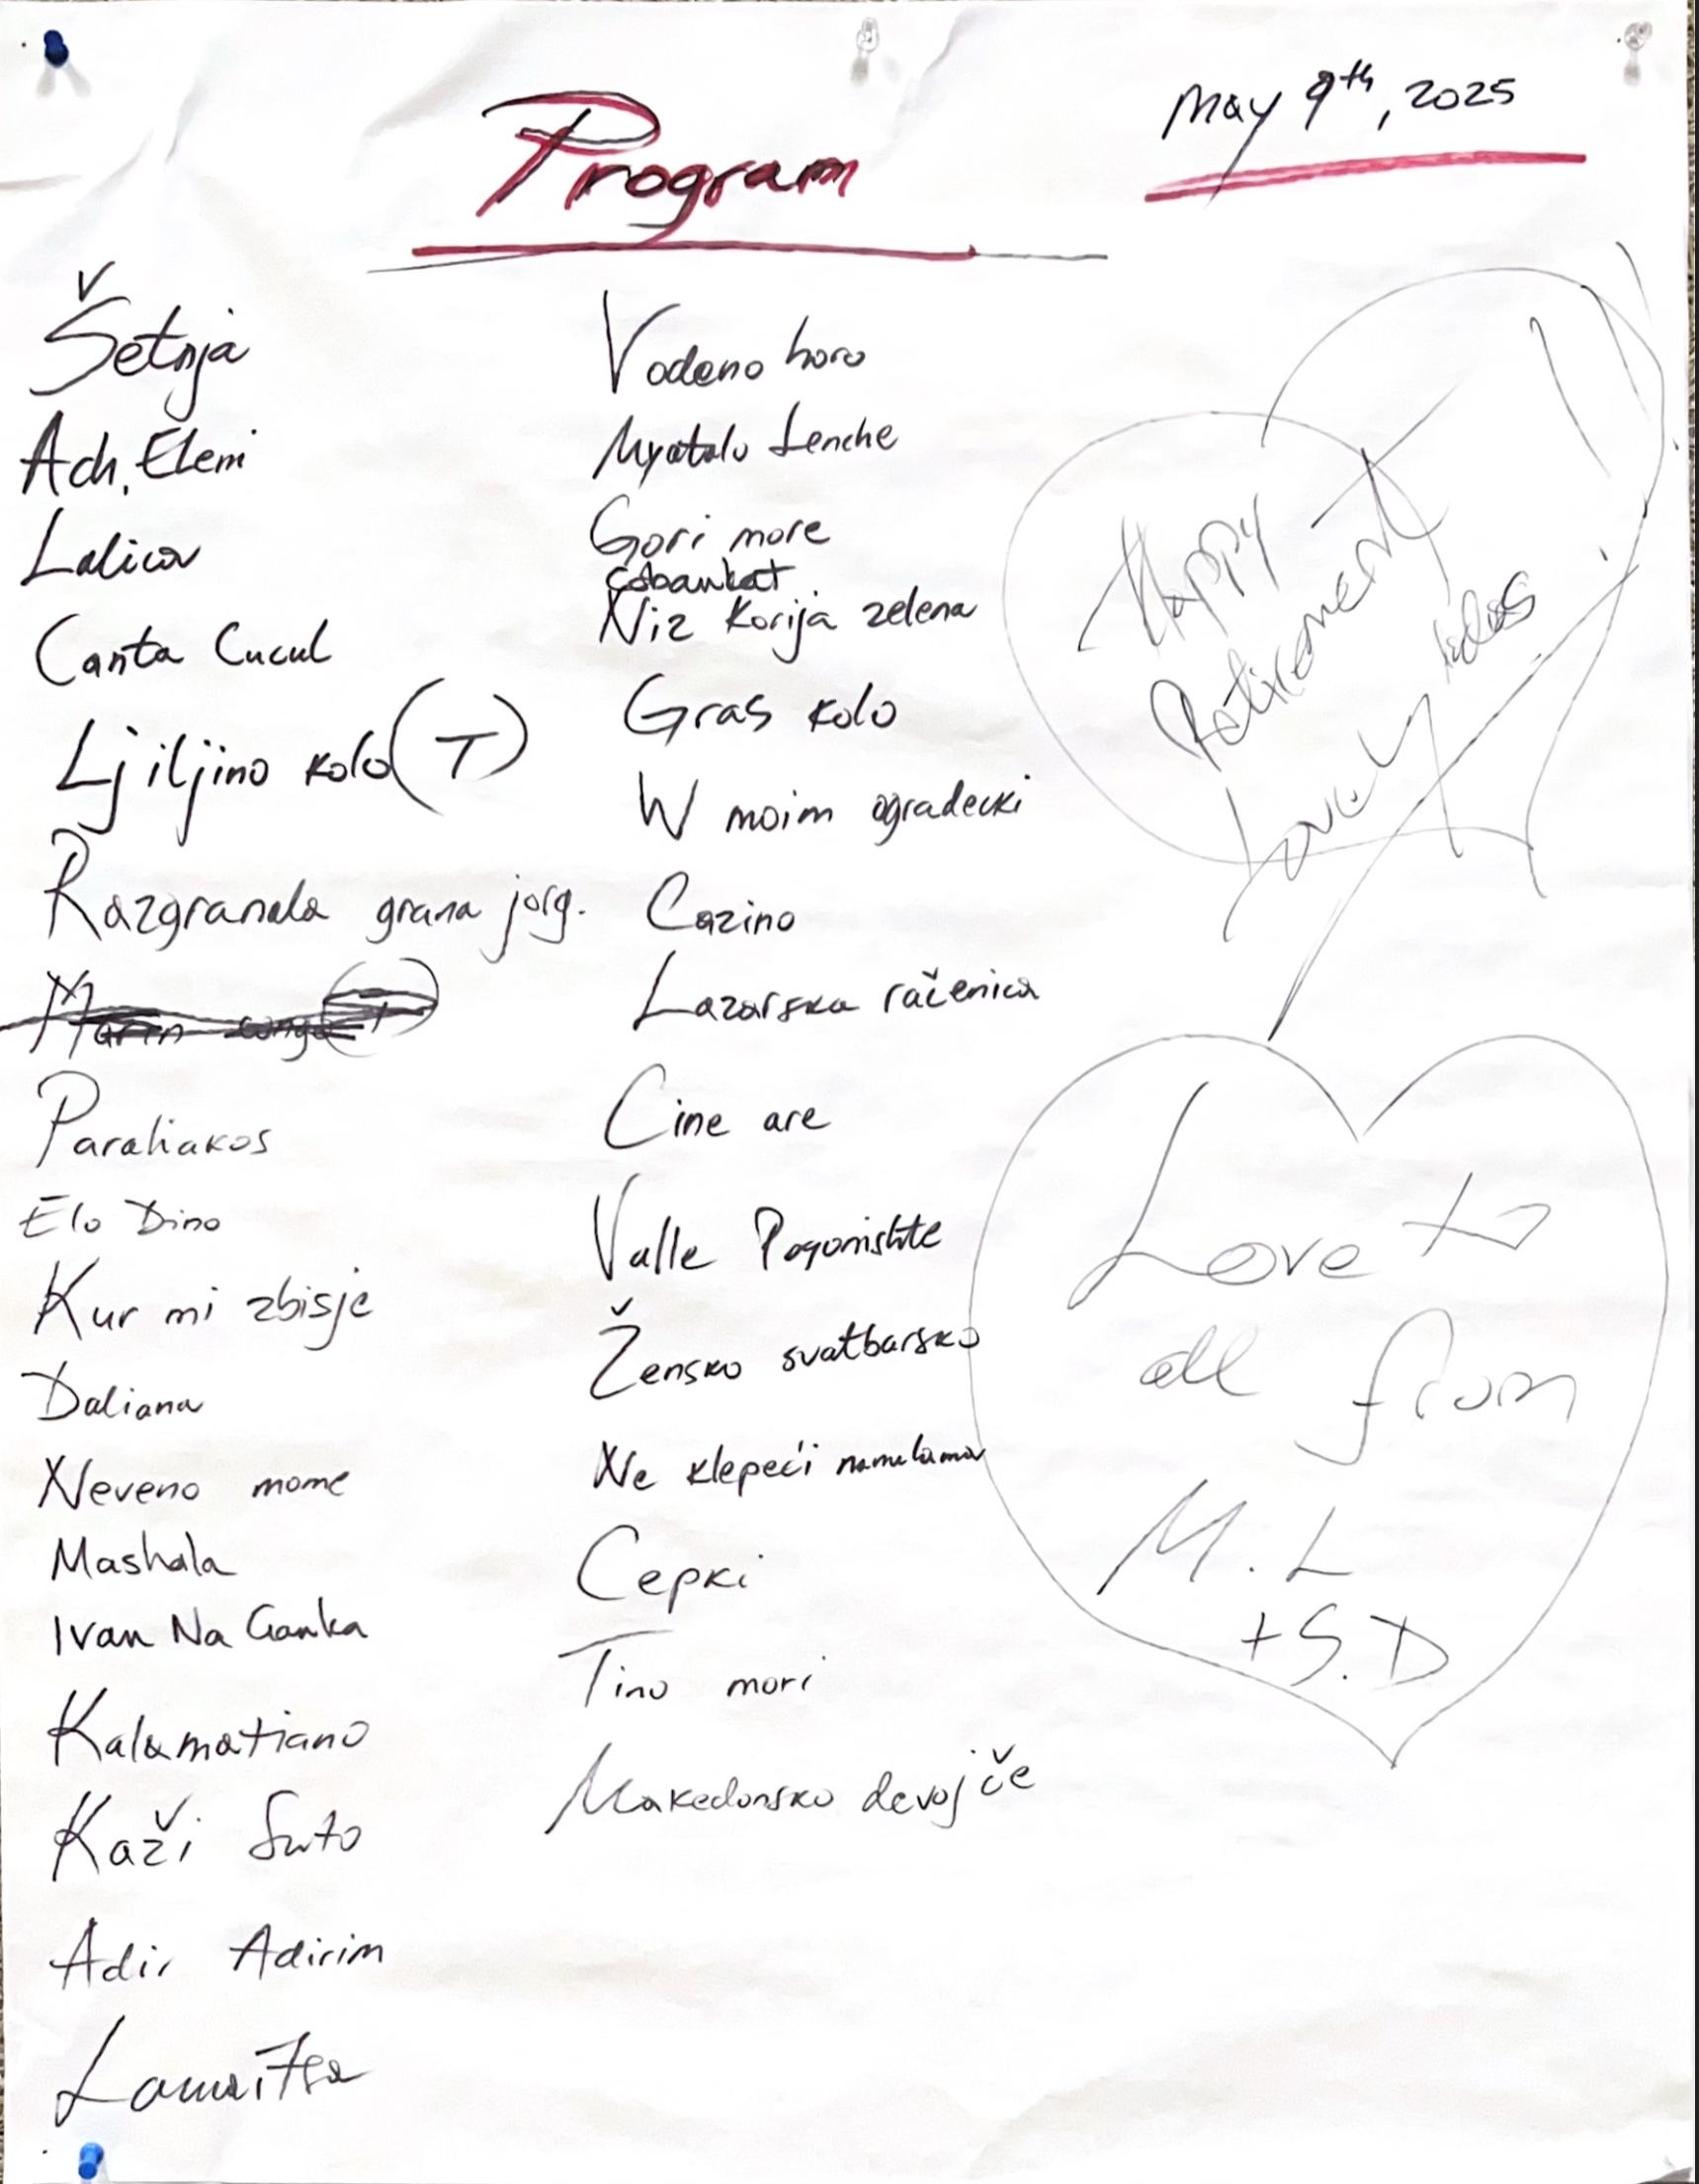 Program
May 9th, 2025
Šetnja
Ach, Eleni
Lalica
Canta Cucul
Ljiljino kolo (T)
Razgranala grana jorg.
Paraliakos
Elo Dino
Kur mi zbisje
Daliana
Neveno mome
Mashala
Ivan Na Ganka
Kalamatiano
Kaži
Adir Adirim
Vodeno horo
Myatalo Lenche
Gori more
čobankat
Niz Korija zelena
Gras kolo
W moim ogradecki
Cazino
Lazarska račenica
Cine are
Valle Pogonishte
Žensko svatbarsko
Ne klepeći nanulama
Cepki
Tino mori
Makedonsko devojče
Happy
Retirement
Lovely
Love to
all from
M. L
+ S. D